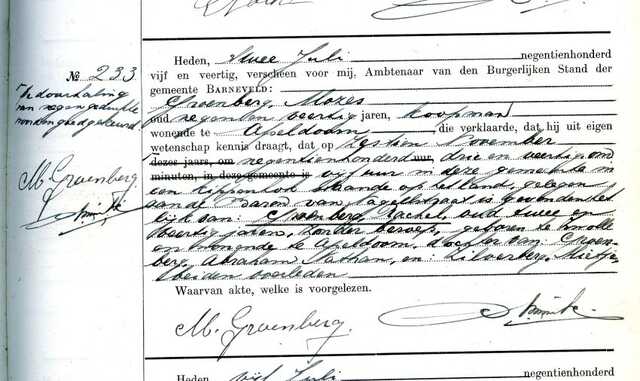 Heden, twee Juli negentienhonderd
№ 233
vijf en veertig, verscheen voor mij, Ambtenaar van den Burgerlijken Stand der
gemeente BARNEVELD:
De doorhaling
van negen gedrukte
woorden goedgekeurd
Groenberg, Mozes
oud negen en veertig jaren, koopman
wonende te Apeldoorn, die verklaarde, dat hij uit eigen
wetenschap kennis draagt, dat op zestien November
dezes jaars, om negentienhonderd uur, drie en veertig om
minuten, in deze gemeente is vijf uur in deze gemeente in
een kippenhok staande op het land, gelegen
aan de Baron van Nagellstraat is gevonden het
lijk van: Groenberg, Rachel, oud twee en
veertig jaren, zonder beroep, geboren te Zwolle
en wonende te Apeldoorn, dochter van: Groen-
berg, Abraham Nathan, en: Zilverberg, Mietje
beiden overleden
Waarvan akte, welke is voorgelezen.
M. Groenberg
M. Groenberg.
Heden, vijf Juli negentienhonderd